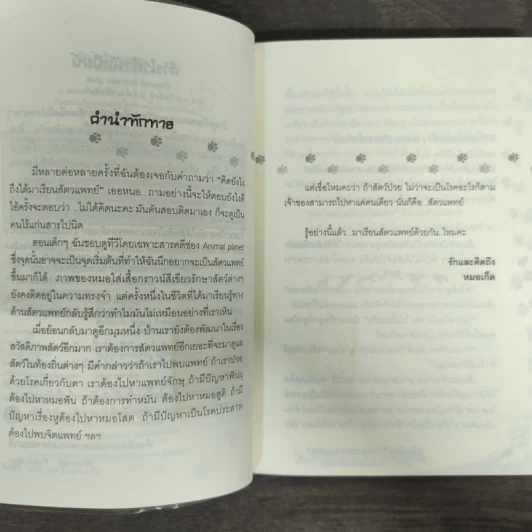 คำนำทักทาย
มีหลายต่อหลายครั้งที่ฉันต้องเจอกับคำถามว่า “คิดยังไง
ถึงได้มาเรียนสัตวแพทย์” เออหนอ...ถามอย่างนี้จะให้ตอบยังไงดี
ไอ้ครั้นจะตอบว่า ..ไม่ได้คิดนะคะ มันดันสอบติดมาเอง ก็จะดูเป็น
คนไร้แก่นสารไปนิด
ตอนเด็กๆ ฉันชอบดูทีวีโดยเฉพาะสารคดีช่อง Animal planet
ซึ่งจุดนั้นอาจจะเป็นจุดเริ่มต้นที่ทำให้ฉันนึกอยากจะเป็นสัตวแพทย์
ขึ้นมาก็ได้ ภาพของหมอใส่เสื้อกราวน์สีเขียวรักษาสัตว์ต่างๆ
ยังคงติดอยู่ในความทรงจำ แต่ครั้งหนึ่งในชีวิตที่ได้มาเรียนรู้ทาง
ด้านสัตวแพทย์กลับรู้สึกว่าทำไมมันไม่เหมือนอย่างที่เราเห็น
เมื่อย้อนกลับมาดูอีกมุมหนึ่ง บ้านเรายังต้องพัฒนาในเรื่อง
สวัสดิภาพสัตว์อีกมาก เราต้องการสัตวแพทย์อีกเยอะที่จะมาดูแล
สัตว์ในท้องถิ่นต่างๆ มีคำกล่าวว่าถ้าเราไปพบแพทย์ ถ้าเราป่วย
ด้วยโรคเกี่ยวกับตา เราต้องไปหาแพทย์จักษุ ถ้ามีปัญหาฟันผุ
ต้องไปหาหมอฟัน ถ้าต้องการทำหมัน ต้องไปหาหมอสูติ ถ้ามี
ปัญหาเรื่องหูต้องไปหาหมอโสต ถ้ามีปัญหาเป็นโรคประสาท
ต้องไปพบจิตแพทย์ ฯลฯ
แต่เชื่อไหมคะว่า ถ้าสัตว์ป่วย ไม่ว่าจะเป็นโรคอะไรก็ตาม
เจ้าของสามารถไปหาแค่คนเดียว นั่นก็คือ...สัตวแพทย์
รู้อย่างนี้แล้ว...มาเรียนสัตวแพทย์ด้วยกัน..ไหมคะ
รักและคิดถึง
หมอเก็ต